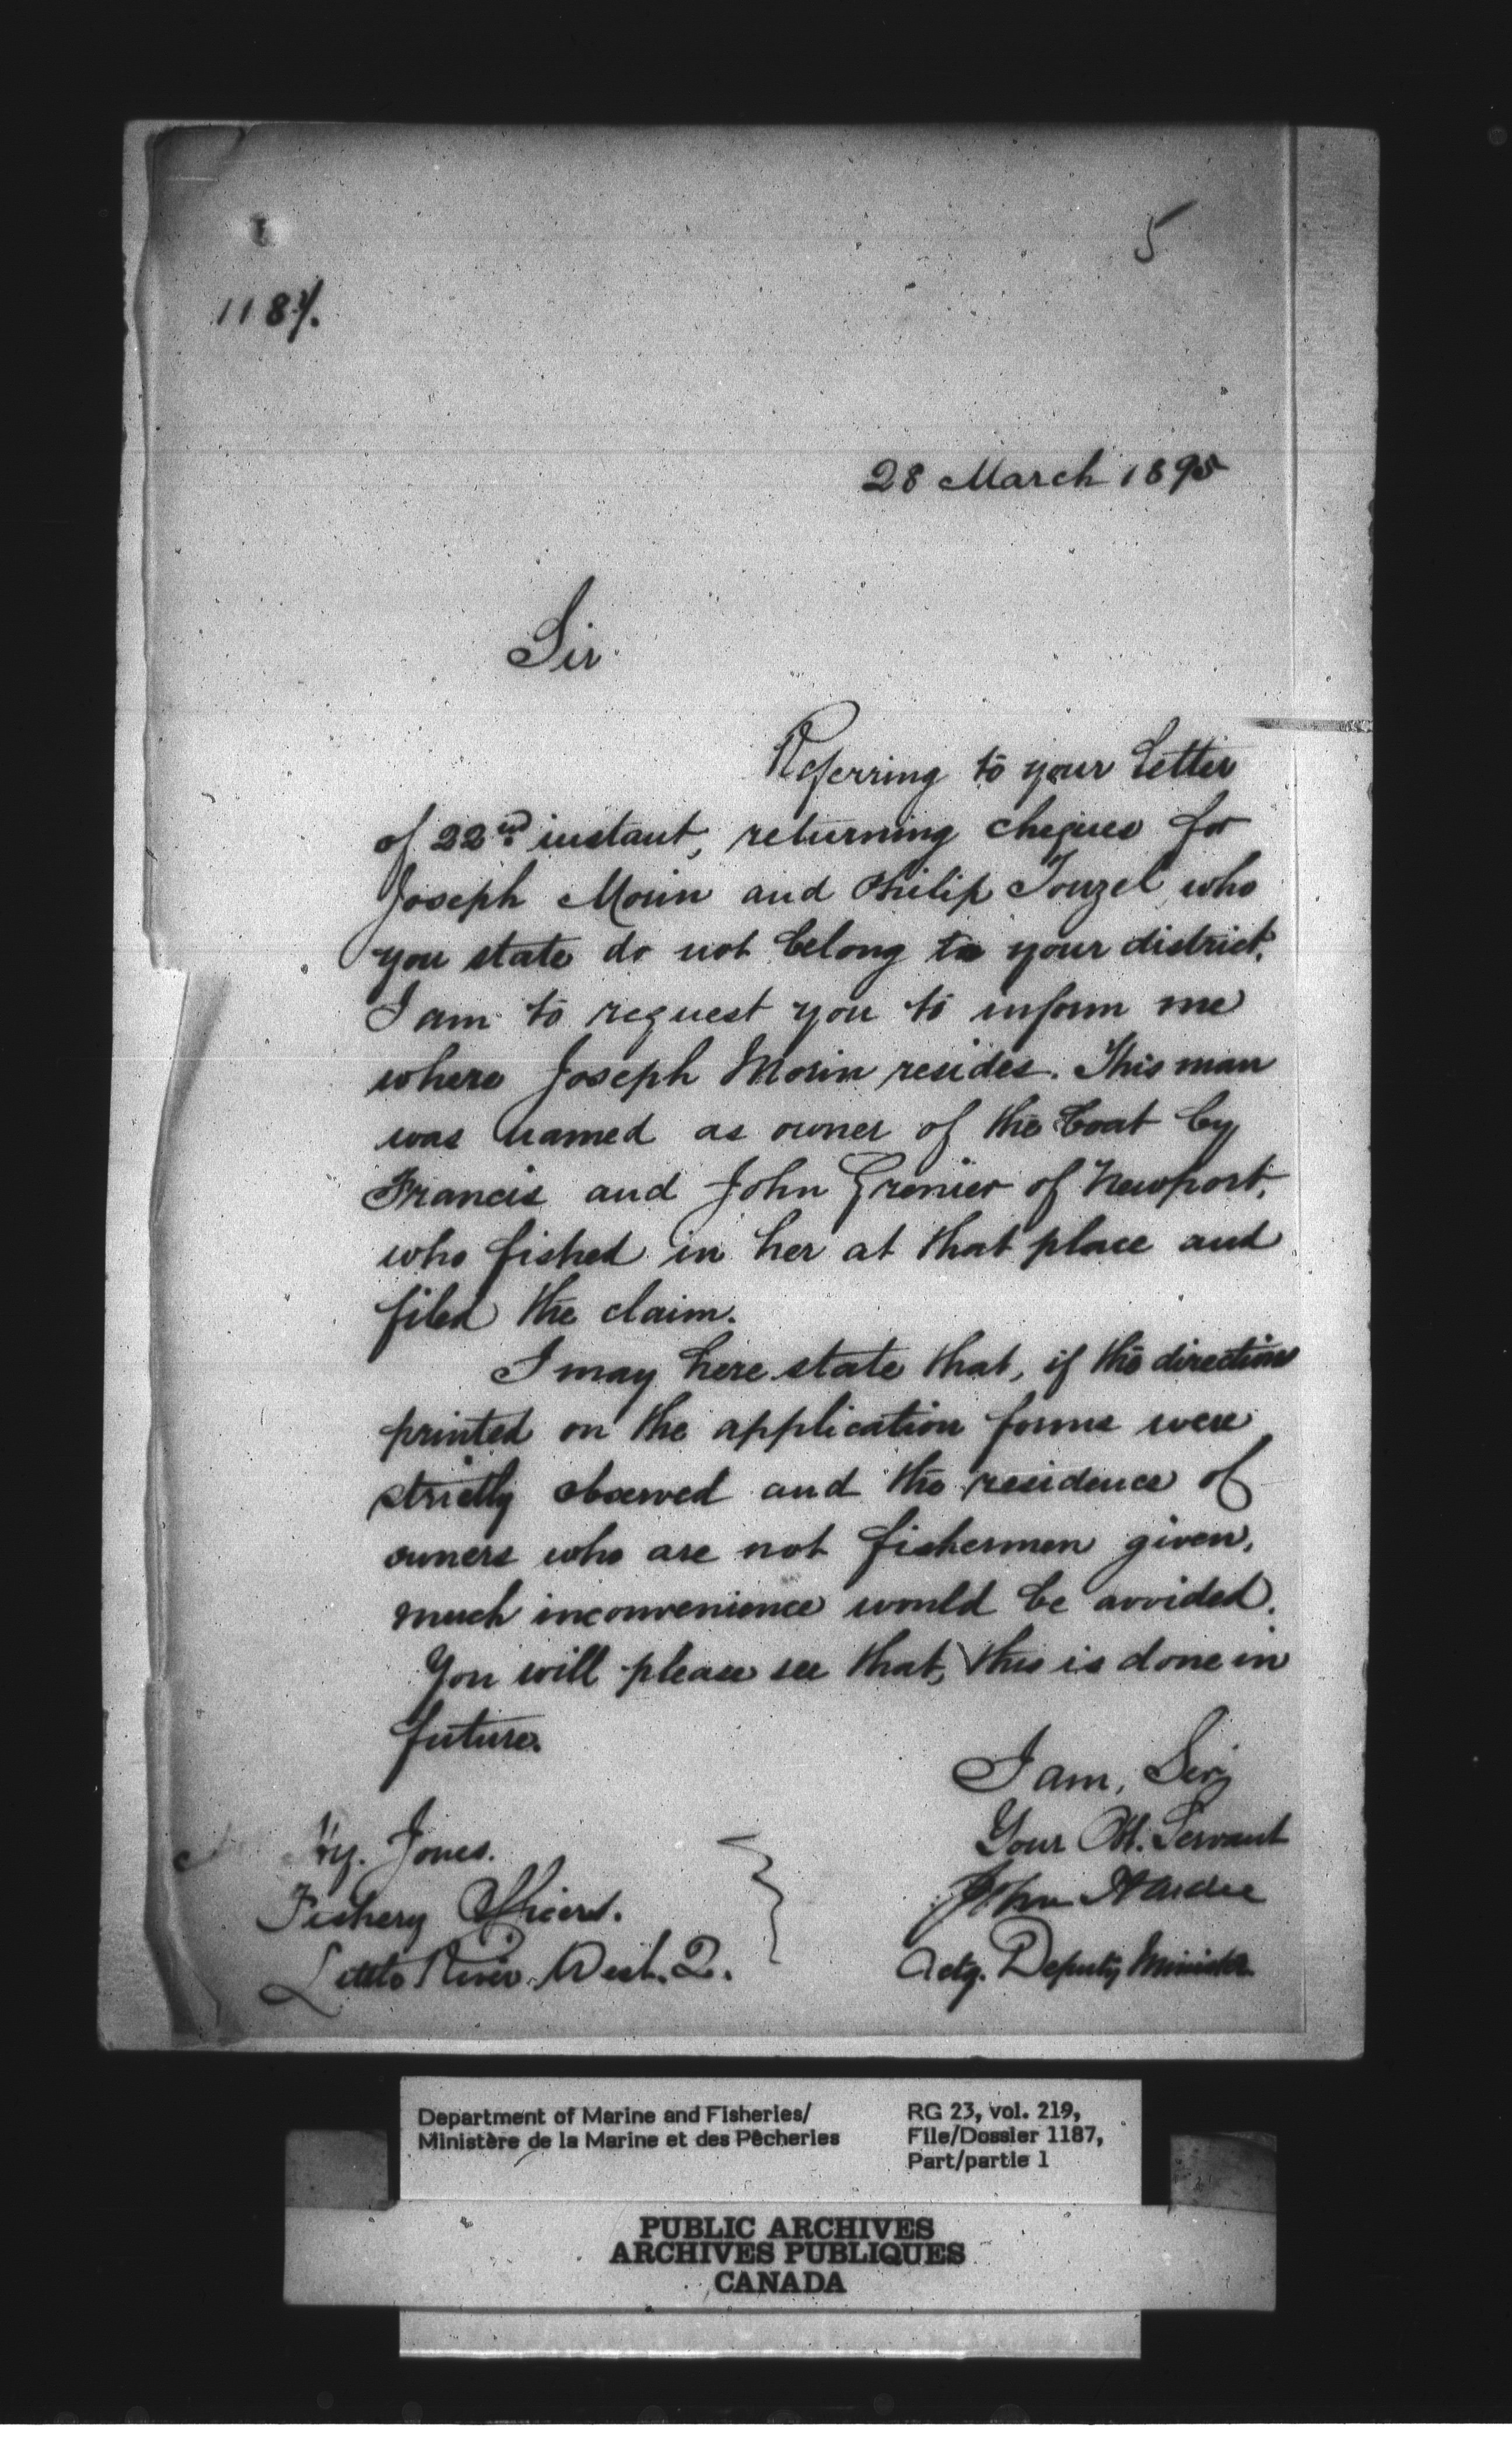 5
1187.
28 March 1895
Sir
Referring to your letter
of 22nd instant, returning cheques for
Joseph Morin and Philip Touzel, who
you state do not belong to your district,
I am to request you to inform me
where Joseph Morin resides. This man
was named as owner of the boat by
Francis and John Grenier of Newport,
who fished in her at that place and
filed the claim.
I may here state that, if the directions
printed on the application forms were
strictly observed and the residence of
owners who are not fishermen given,
much inconvenience would be avoided.
You will please see that, this is done in
future.
I am, Sir,
Your Obt. Servant
John Hardie
Actg. Deputy Minister
Hy. Jones.
Fishery Officer.
Little River West. Q.
Department of Marine and Fisheries/
Ministère de la Marine et des Pêcheries
RG 23, vol. 219,
File/Dossier 1187,
Part/partie 1
PUBLIC ARCHIVES
ARCHIVES PUBLIQUES
CANADA